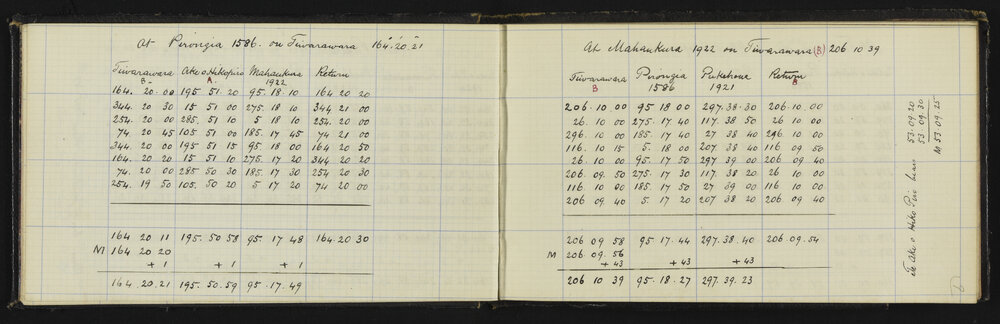 At Pirongia 1586. on Tuwarawara 164°.20'.21"
Tuwarawara Ake o Hikopiro Mahaukura Return
B A 1922
164. 20. 00 195. 51. 20 95. 18. 10 164 20 20
344. 20 30 15 51 00 275. 18 10 344 21 00
254. 20 00 285. 51 10 5 18 10 254. 20 00
74 20 45 105 51 00 185. 17 45 74 21 00
344 20 00 195 51 15 95. 18 00 164 20 50
164. 20 20 15 51 10 275. 17 20 344 20 20
74. 20 00 285 50 30 185. 17 30 254 20 30
254. 19 50 105. 50 20 5 17 20 74 20 00
164 20 11 195. 50 58 95. 17 48 164 20 30
M 164 20 20
+ 1 + 1 + 1
164. 20. 21 195. 50. 59 95. 17. 49
At Mahaukura 1922 on Tuwarawara (B) 206 10 39
Tuwarawara Pirongia Pukehoua Return
B 1586 1921 B
206. 10 00 95 18 00 297. 38. 30 206. 10 00
26. 10 00 275. 17 40 117. 38 50 26 10 00
296. 10 00 185. 17 40 27 38 40 296 10 00
116. 10 15 5. 18 00 207. 38 40 116 09 50
26. 10 00 95. 17 50 297 39 00 206 09 40
206. 09. 50 275. 17 30 117. 38 20 26 10 00
116. 10 00 185. 17 50 27 39 00 116 10 00
206 09 40 5. 17 20 207 38 20 206 09 40
206 09 58 95. 17. 44 297. 38. 40 206. 09. 54
M 206. 09. 56
+ 43 + 43 + 43
206 10 39 95. 18. 27 297. 39. 23
Te Ake o Hiko Piro 53. 09. 20
53. 09. 30
M 53. 09. 25